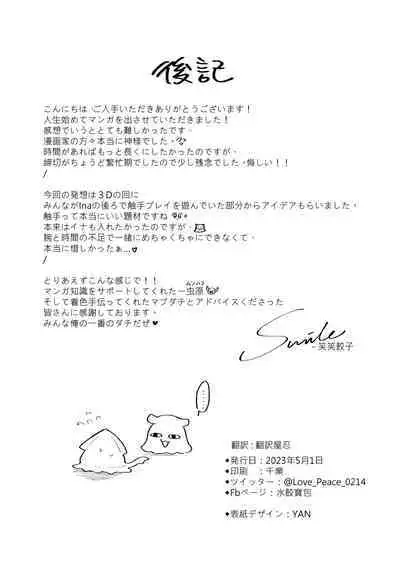 後記
こんにちは、ご入手いただきありがとうございます！
人生始めてマンガを出させていただきました！
感想でいうととても難しかったです、
漫画家の方々本当に神様でした、
時間があればもっと長くにしたかったのですが、
締切がちょうど繁忙期でしたので少し残念でした、悔しい！！
/
今回の発想は３Dの回に
みんながInaの後ろで触手プレイを遊んでいた部分からアイデアもらいました。
触手って本当にいい題材ですね
本来はイナも入れたかったのですが、
腕と時間の不足で一緒にめちゃくちゃにできなくて、
本当に惜しかったぁ...♥
/
とりあえずこんな感じで！！
マンガ知識をサポートしてくれた一虫原
そして着色手伝ってくれたマブダチとアドバイスくださった
皆さんに感謝しております、
みんな俺の一番のダチだぜ♥
Smile
- 笑笑餃子
……
翻訳：翻訳屋忍
◆発行日：2023年5月1日
◆印刷　：千業
◆ツイッター：@Love_Peace_0214
◆Fbページ：水餃寶包
◆表紙デザイン：YAN